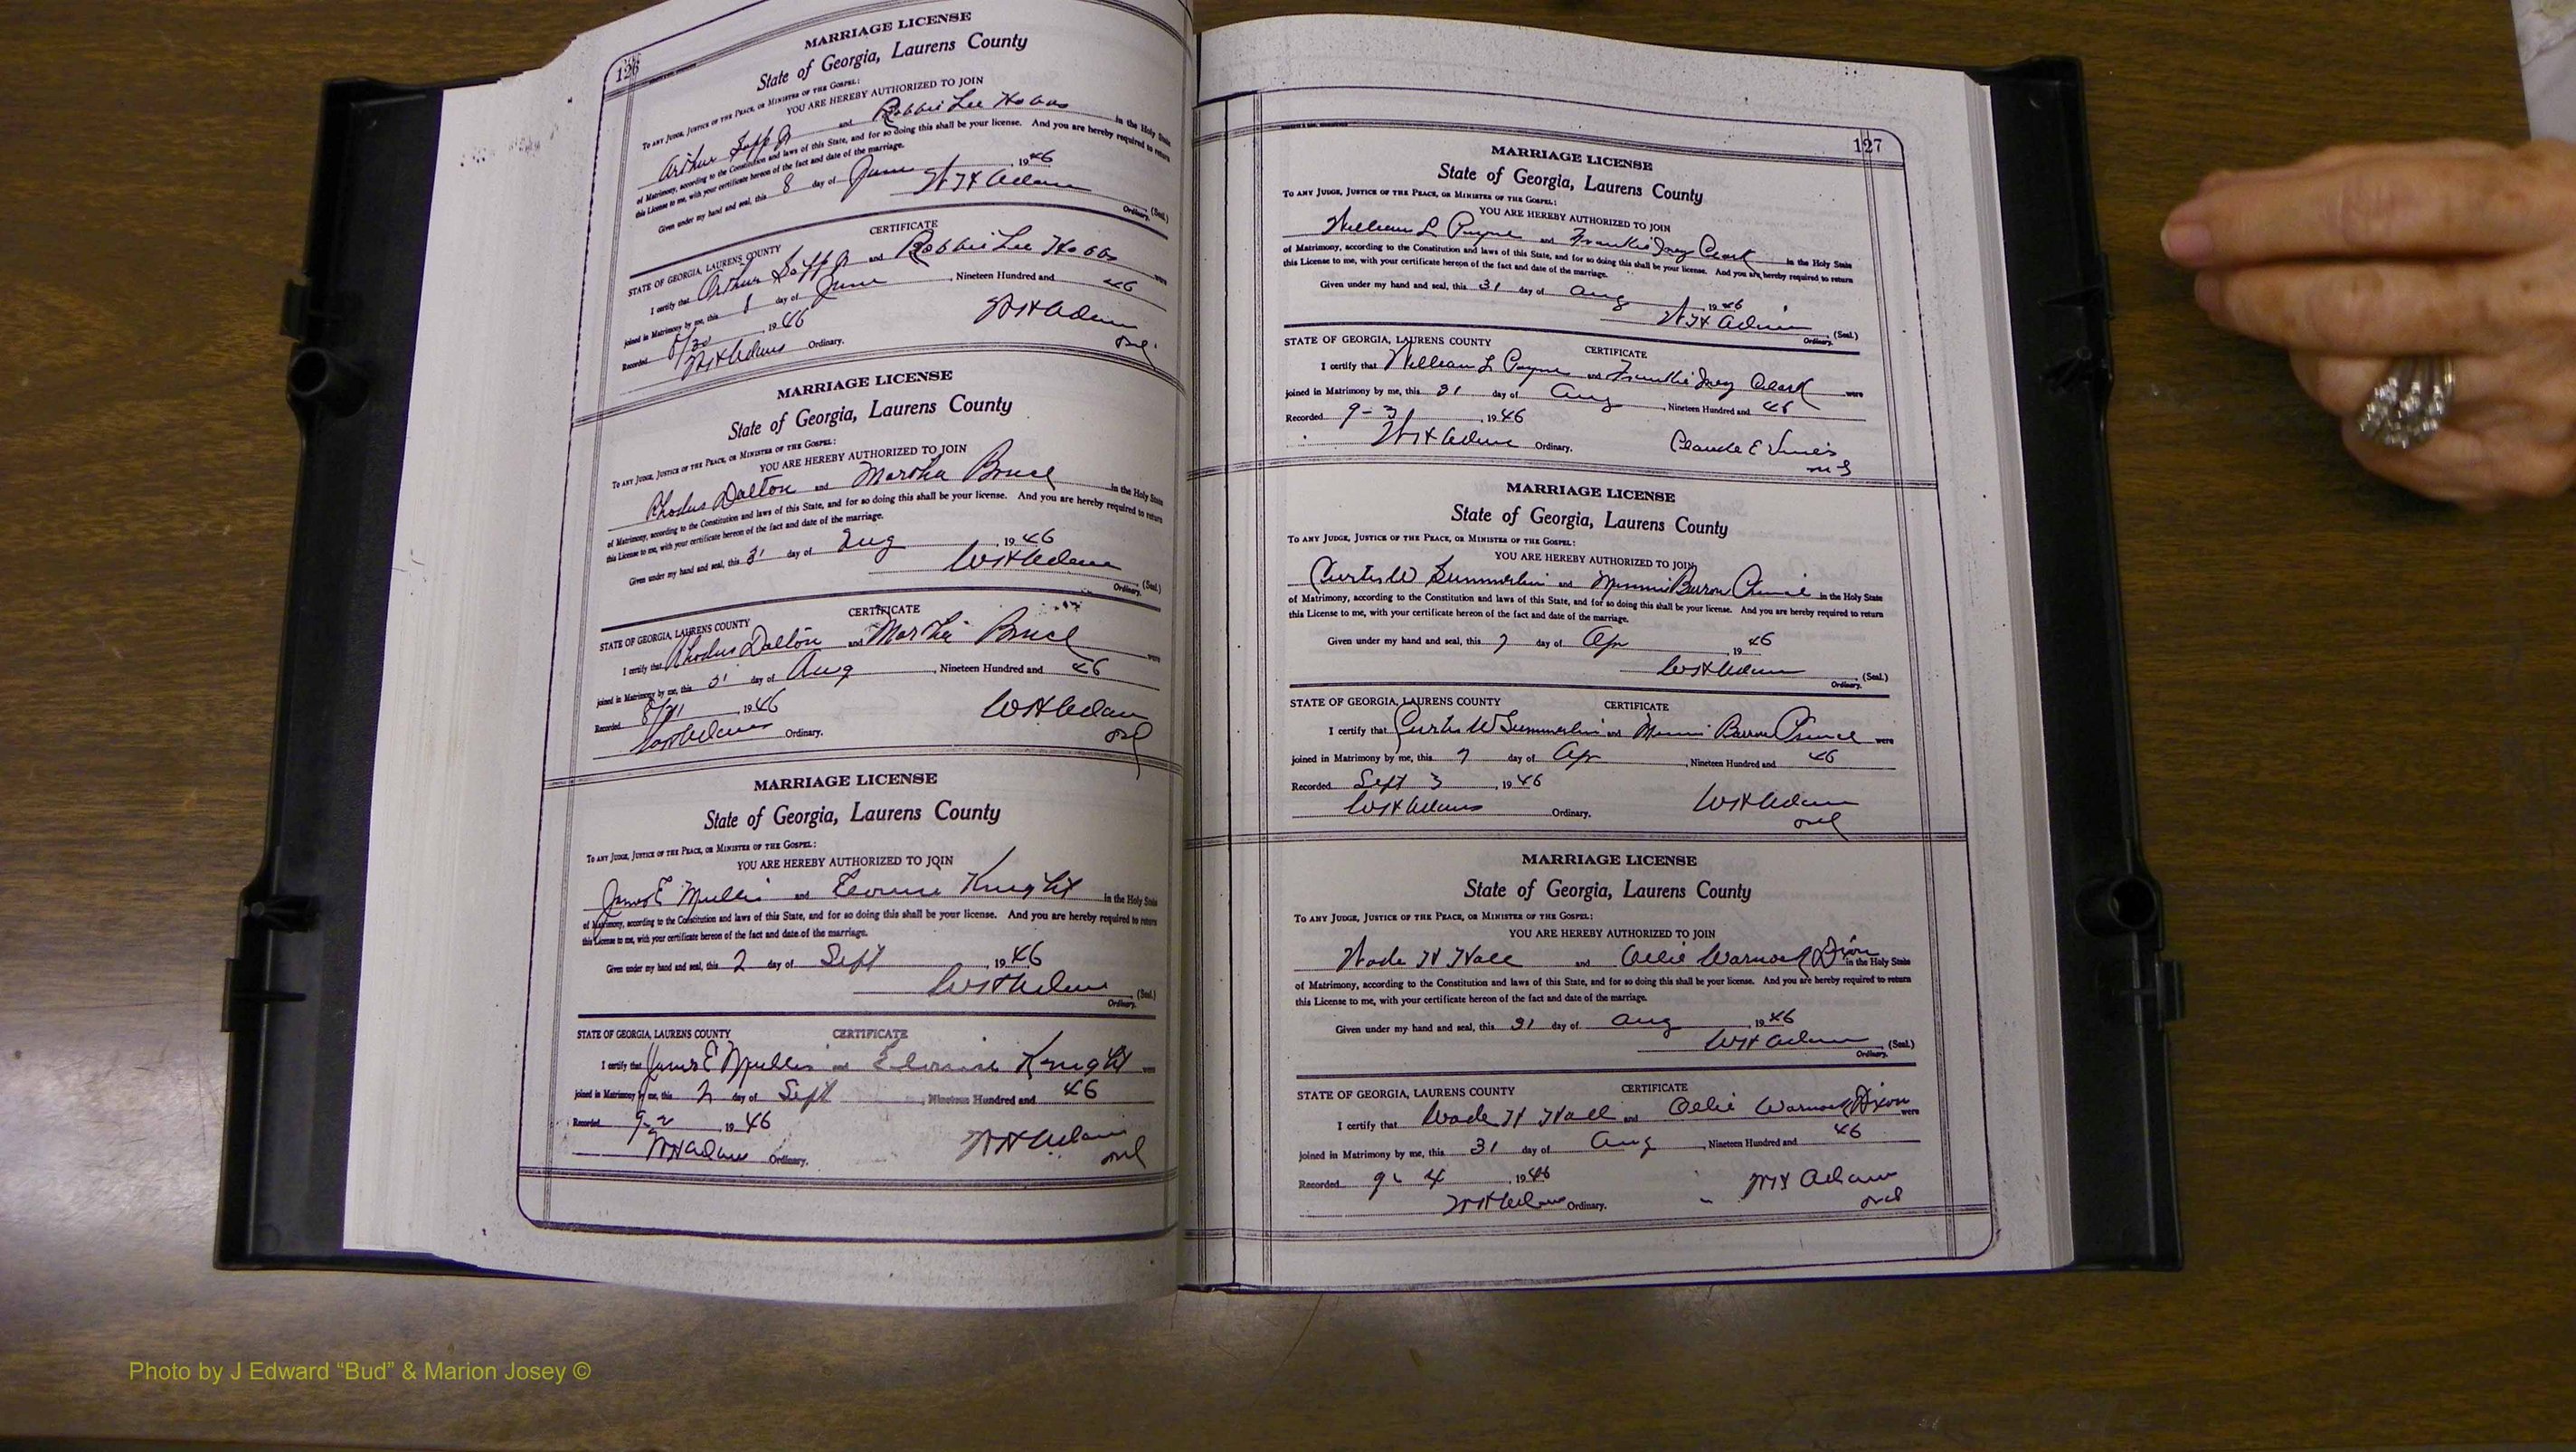 126
MARRIAGE LICENSE
State of Georgia, Laurens County
To any Judge, Justice of the Peace, or Minister of the Gospel:
YOU ARE HEREBY AUTHORIZED TO JOIN
Arthur Sapp Jr and Robbie Lee Hobbs in the Holy State
of Matrimony, according to the Constitution and laws of this State, and for so doing this shall be your license. And you are hereby required to return
this License to me, with your certificate hereon of the fact and date of the marriage.
Given under my hand and seal, this 8 day of June, 1946
W H Adams (Seal.)
Ordinary.
CERTIFICATE
STATE OF GEORGIA, LAURENS COUNTY
I certify that Arthur Sapp Jr and Robbie Lee Hobbs were
joined in Matrimony by me, this 8 day of June, Nineteen Hundred and 46
Recorded 8/30, 1946 W H Adams
W H Adams Ordinary. Ord.
MARRIAGE LICENSE
State of Georgia, Laurens County
To any Judge, Justice of the Peace, or Minister of the Gospel:
YOU ARE HEREBY AUTHORIZED TO JOIN
Rhodus Dalton and Martha Bruce in the Holy State
of Matrimony, according to the Constitution and laws of this State, and for so doing this shall be your license. And you are hereby required to return
this License to me, with your certificate hereon of the fact and date of the marriage.
Given under my hand and seal, this 31 day of Aug, 1946
W H Adams (Seal.)
Ordinary.
CERTIFICATE
STATE OF GEORGIA, LAURENS COUNTY
I certify that Rhodus Dalton and Martha Bruce were
joined in Matrimony by me, this 31 day of Aug, Nineteen Hundred and 46
Recorded 8/31, 1946 W H Adams
W H Adams Ordinary. Ord
MARRIAGE LICENSE
State of Georgia, Laurens County
To any Judge, Justice of the Peace, or Minister of the Gospel:
YOU ARE HEREBY AUTHORIZED TO JOIN
James E Mullis and Elouise Knight in the Holy State
of Matrimony, according to the Constitution and laws of this State, and for so doing this shall be your license. And you are hereby required to return
this License to me, with your certificate hereon of the fact and date of the marriage.
Given under my hand and seal, this 2 day of Sept, 1946
W H Adams (Seal.)
Ordinary.
STATE OF GEORGIA, LAURENS COUNTY CERTIFICATE
I certify that James E Mullis and Elouise Knight were
joined in Matrimony by me, this 2 day of Sept, Nineteen Hundred and 46
Recorded 9-2, 1946 W H Adams
W H Adams Ordinary. Ord
127
MARRIAGE LICENSE
State of Georgia, Laurens County
To any Judge, Justice of the Peace, or Minister of the Gospel:
YOU ARE HEREBY AUTHORIZED TO JOIN
William L Payne and Frankie Clark in the Holy State
of Matrimony, according to the Constitution and laws of this State, and for so doing this shall be your license. And you are hereby required to return
this License to me, with your certificate hereon of the fact and date of the marriage.
Given under my hand and seal, this 31 day of Aug, 1946
W H Adams (Seal.)
Ordinary.
STATE OF GEORGIA, LAURENS COUNTY CERTIFICATE
I certify that William L Payne and Frankie Clark were
joined in Matrimony by me, this 31 day of Aug, Nineteen Hundred and 46
Recorded 9-3, 1946
W H Adams Ordinary. Claude E Vines
M G
MARRIAGE LICENSE
State of Georgia, Laurens County
To any Judge, Justice of the Peace, or Minister of the Gospel:
YOU ARE HEREBY AUTHORIZED TO JOIN
Curtis W Summerlin and Minnie Barron Prince in the Holy State
of Matrimony, according to the Constitution and laws of this State, and for so doing this shall be your license. And you are hereby required to return
this License to me, with your certificate hereon of the fact and date of the marriage.
Given under my hand and seal, this 7 day of Apr, 1946
W H Adams (Seal.)
Ordinary.
STATE OF GEORGIA, LAURENS COUNTY CERTIFICATE
I certify that Curtis W Summerlin and Minnie Barron Prince were
joined in Matrimony by me, this 7 day of Apr, Nineteen Hundred and 46
Recorded Sept 3, 1946
W H Adams Ordinary. W H Adams
Ord
MARRIAGE LICENSE
State of Georgia, Laurens County
To any Judge, Justice of the Peace, or Minister of the Gospel:
YOU ARE HEREBY AUTHORIZED TO JOIN
Wade H Hall and Ollie Warnock Dixon in the Holy State
of Matrimony, according to the Constitution and laws of this State, and for so doing this shall be your license. And you are hereby required to return
this License to me, with your certificate hereon of the fact and date of the marriage.
Given under my hand and seal, this 31 day of Aug, 1946
W H Adams (Seal.)
Ordinary.
STATE OF GEORGIA, LAURENS COUNTY CERTIFICATE
I certify that Wade H Hall and Ollie Warnock Dixon were
joined in Matrimony by me, this 31 day of Aug, Nineteen Hundred and 46
Recorded 9-4, 1946 W H Adams
W H Adams Ordinary. Ord
Photo by J Edward “Bud” & Marion Josey ©